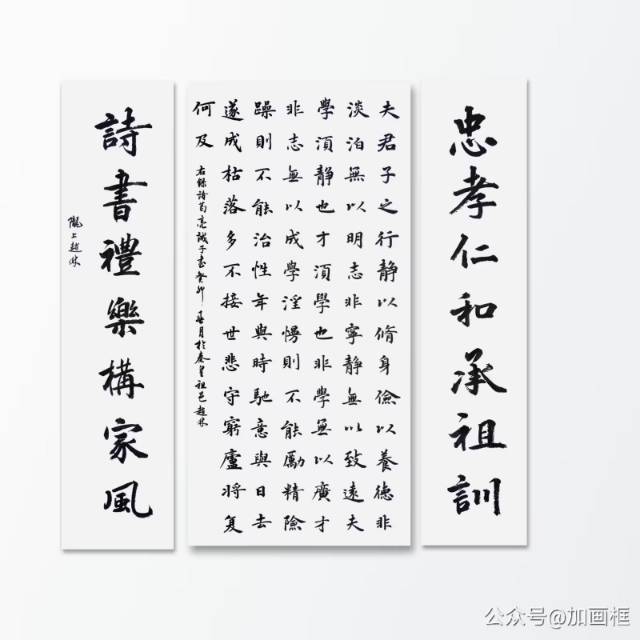 忠孝仁和承祖訓
夫君子之行靜以脩身儉以養德非
淡泊無以明志非寧靜無以致遠夫
學湏靜也才湏學也非學無以廣才
非志無以成學淫慢則不能勵精險
躁則不能治性年與時馳意與日去
遂成枯落多不接世悲守窮廬將复
何及
右錄諸葛亮誡子書癸卯月於秦皇祖邑趙林
詩書禮樂構家風
隴上趙林
公众号@加画框